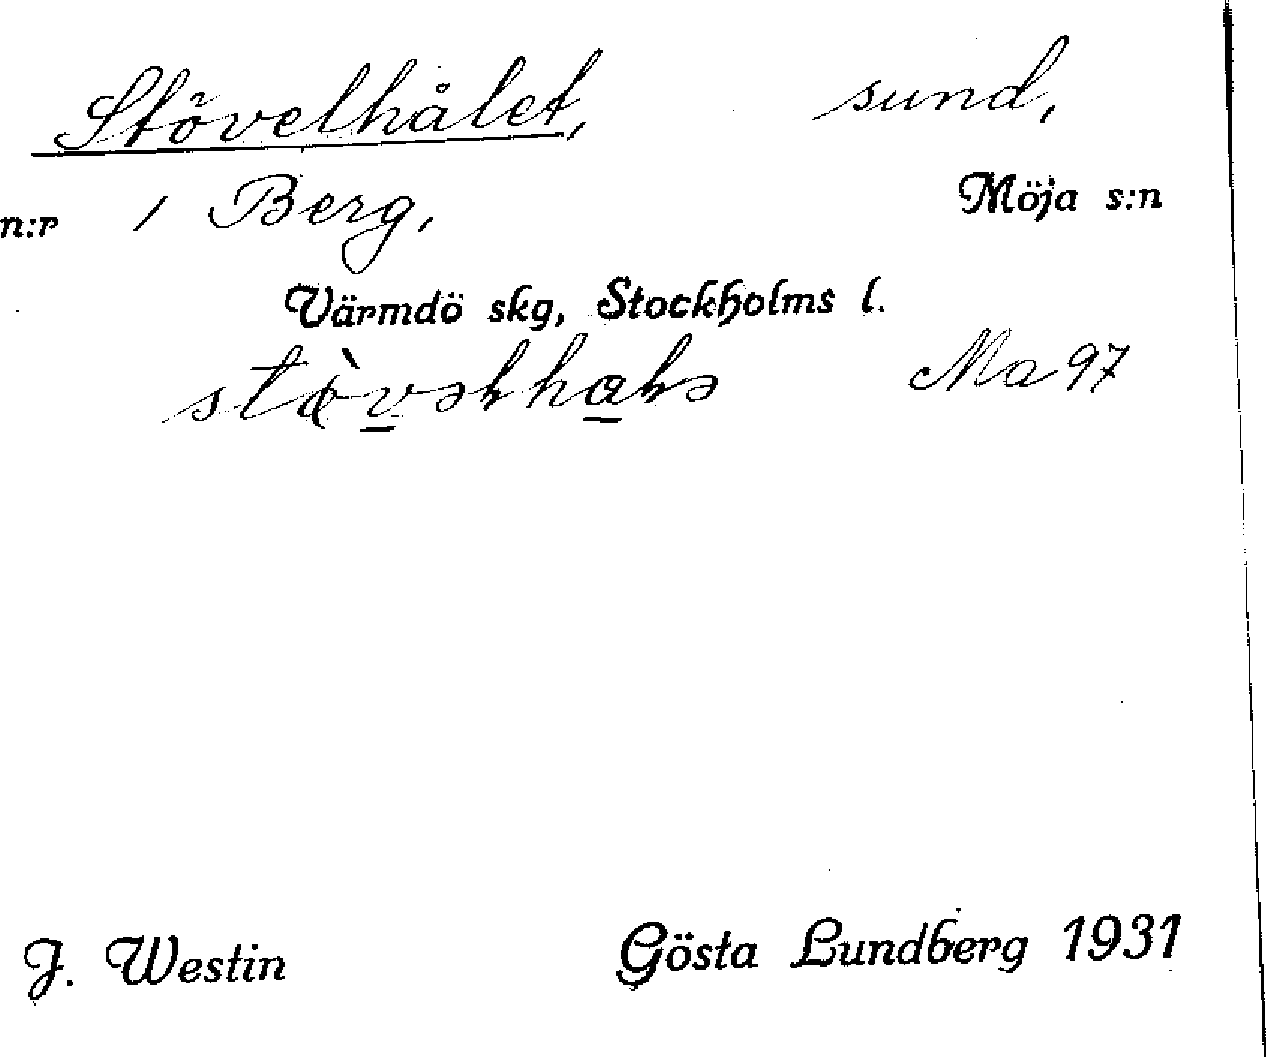 Stövelhålet, sund,
n:r 1 Berg, Möja s:n
Värmdö skg, Stockholms l.
Ma 97
J. Westin Gösta Lundberg 1931